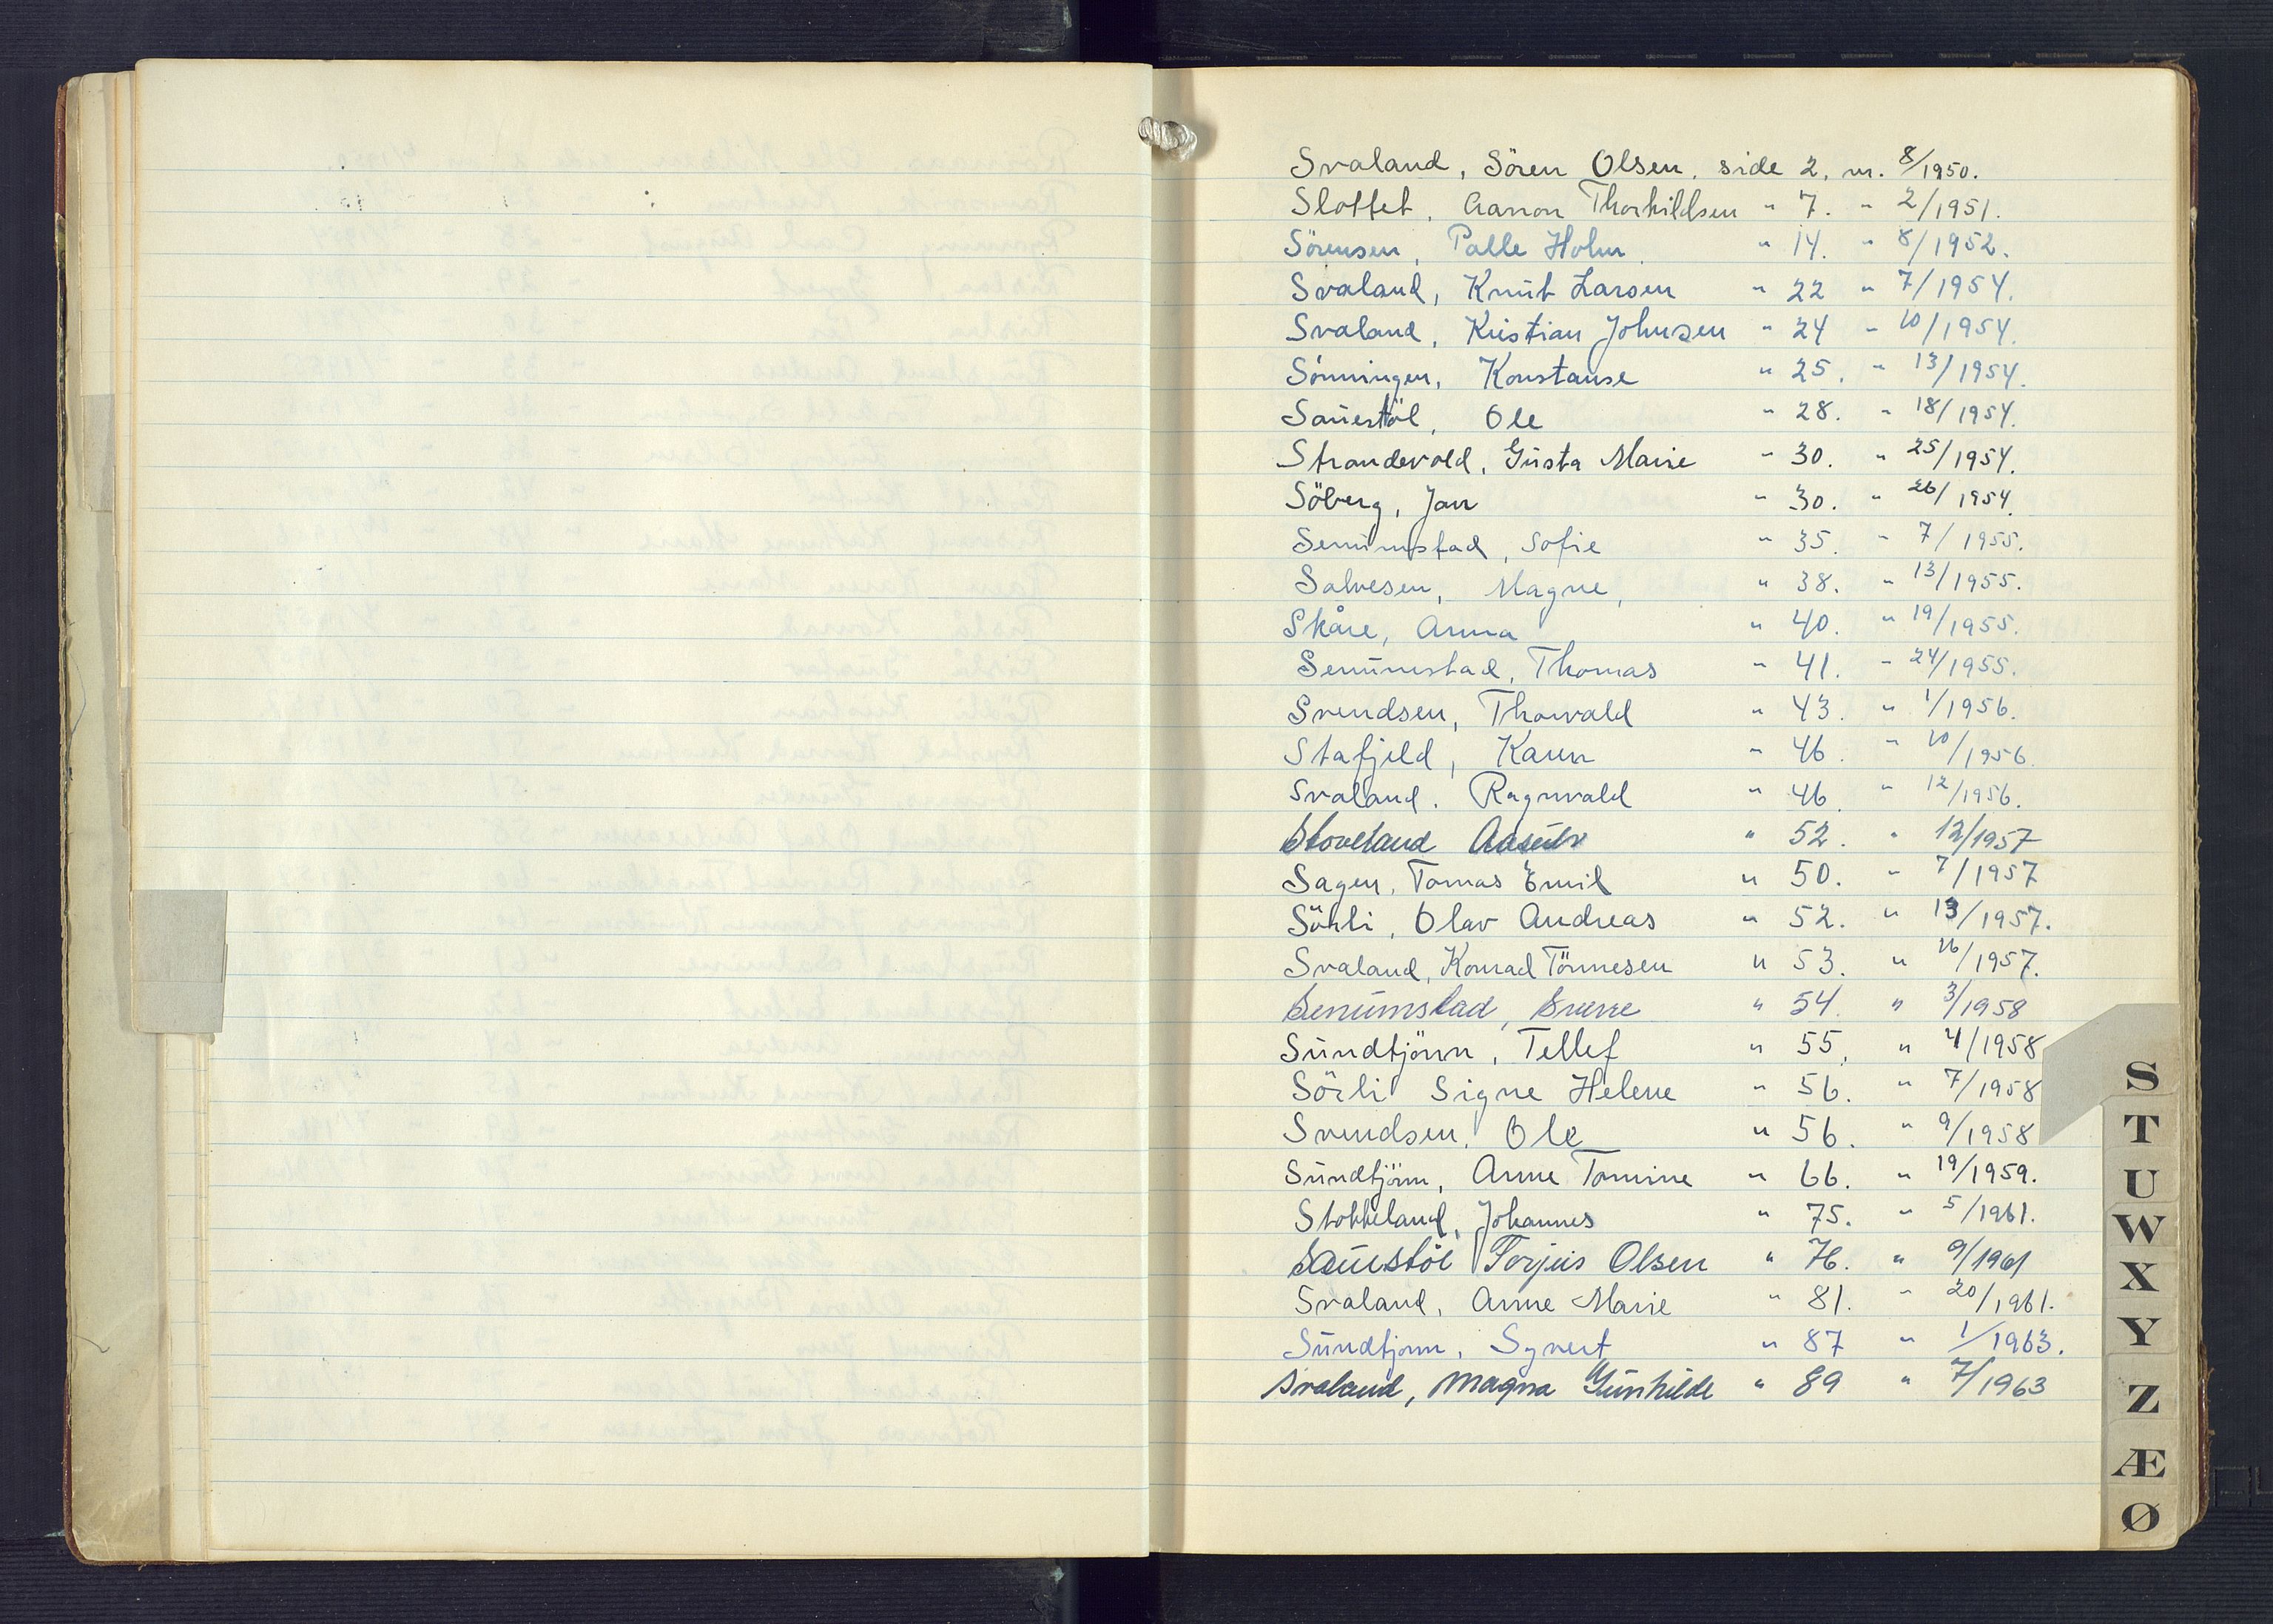 Svaland, Sören Olsen, side 2, nr. 8/1950.
Slottet, Aanon Thorkildsen " 7. " 2/1951.
Sörensen, Palle Holm. " 14. " 8/1952.
Svaland, Knut Larsen " 22 " 7/1954.
Svaland, Kristian Johnsen " 24 " 10/1954.
Sönningen, Konstanse " 25. " 13/1954.
Sauestöl, Ole " 28. " 18/1954.
Strandevold, Gusta Marie " 30. " 25/1954.
Söberg, Jan " 30. " 26/1954.
Senumstad, Sofie " 35. " 7/1955.
Salvesen, Magne, " 38. " 13/1955.
Skåre, Anna " 40. " 19/1955.
Senumstad, Thomas " 41. " 24/1955.
Svendsen, Thorvald " 43. " 1/1956.
Stafjeld, Karen " 46. " 10/1956.
Svaland, Ragnvald " 46. " 12/1956.
Stoveland Aasulv " 52. " 12/1957
Sagen, Tomas Emil " 50. " 7/1957
Sörli, Olav Andreas " 52. " 13/1957.
Svaland, Konrad Tönnesen " 53. " 16/1957.
Senumstad, Sverre " 54. " 3/1958
Sundtjönn, Tellef " 55. " 4/1958
Sörli Signe Helene " 56. " 7/1958
Svendsen, Ole " 56. " 9/1958
Sundtjönn, Anne Tomine " 66. " 19/1959.
Stokkeland, Johannes " 75. " 5/1961.
Sauestöl Torjus Olsen " 76. " 9/1961
Svaland, Anne Marie " 81. " 20/1961.
Sundtjonn, Syvert " 87 " 1/1963.
Svaland, Magna Gunhilde " 89 " 7/1963
S
T
U
W
X
Y
Z
Æ
Ø